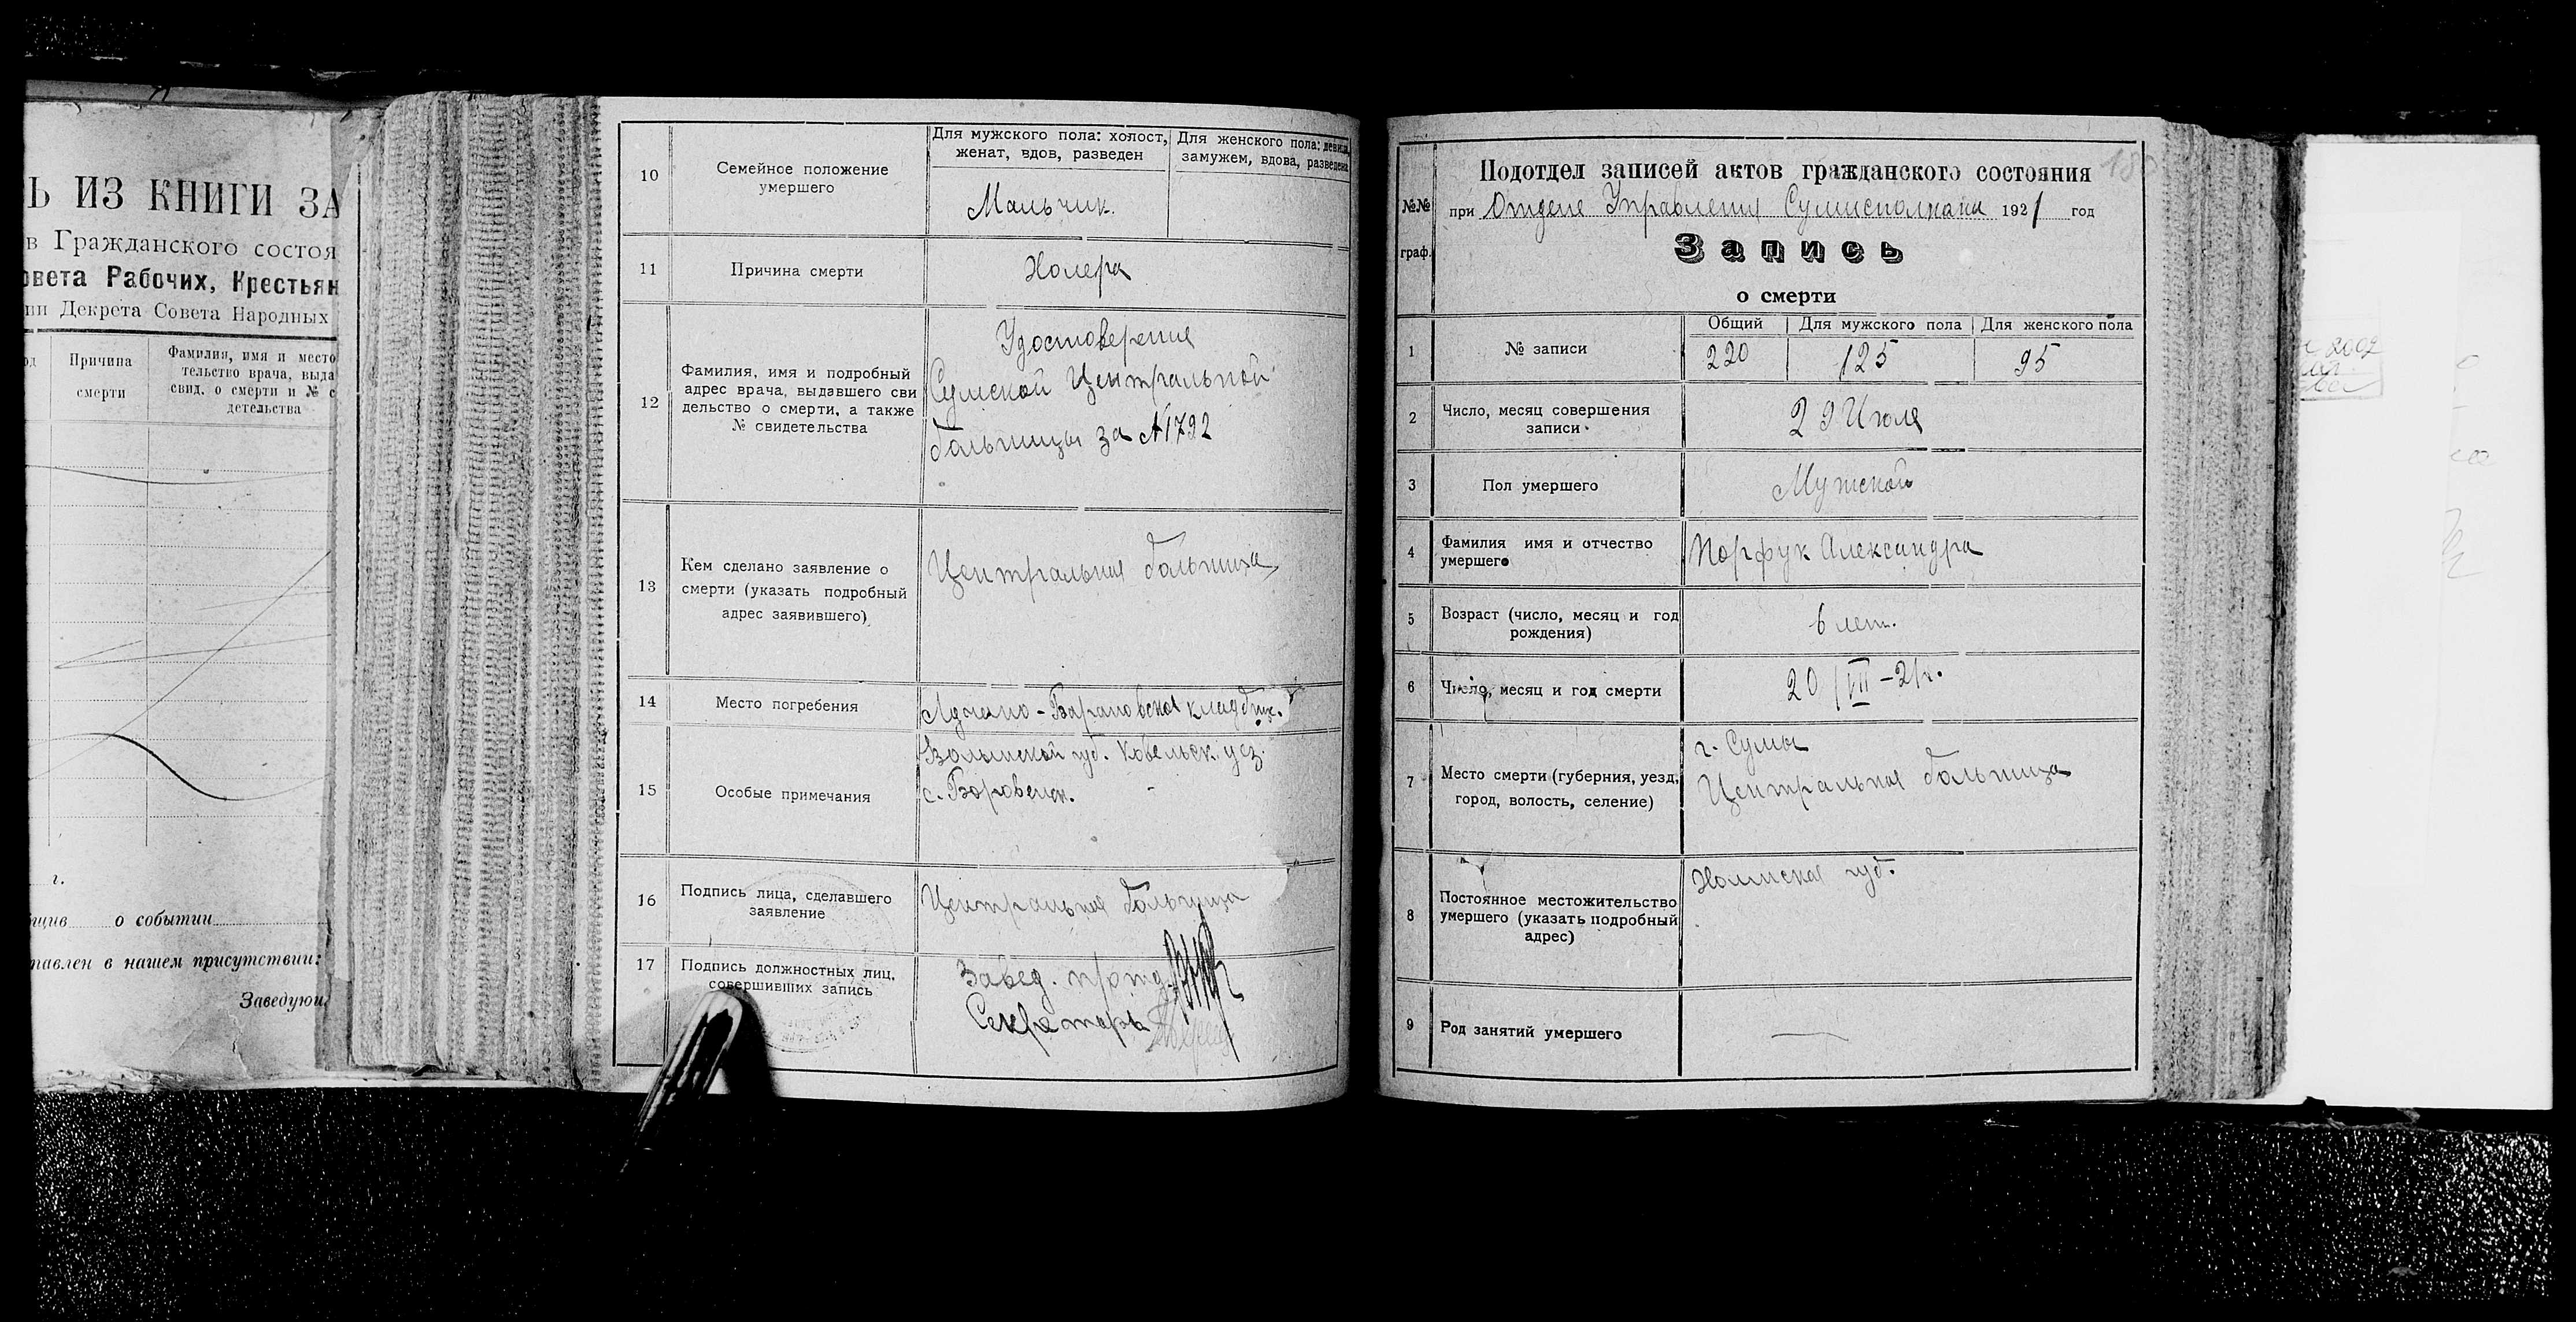 Ь ИЗ КНИГИ ЗА
в Гражданского состоя
овета Рабочих, Крестьян
ии Декрета Совета Народных
Причина
смерти
Фамилия, имя и место
тельство врача, выда
свид. о смерти и № с
детельства
г.
о событии
тавлен в нашем присутствии:
Заведующ
10
Семейное положение
умершего
Для мужского пола: холост,
женат, вдов, разведен
Для женского пола: девица,
замужем, вдова, разведена
Мальчик.
11
Причина смерти
Холера
12
Фамилия, имя и подробный
адрес врача, выдавшего сви
дельство о смерти, а также
№ свидетельства
Удостоверения
Сумской Центральной
больницы за №1792
13
Кем сделано заявление о
смерти (указать подробный
адрес заявившего)
Центральная больница
14
Место погребения
Барановское кладбищ.
15
Особые примечания
Волынской губ. Ковельск. уез.
с. Боровенск.
16
Подпись лица, сделавшего
заявление
Центральная больница
17
Подпись должностных лиц,
совершивших запись
Завед. п/отд.
Секретарь
№№
граф.
Подотдел записей актов гражданского состояния
при Отделе Управления Сумисполкома 1921 год
Запись
о смерти
1
№ записи
Общий
Для мужского пола
Для женского пола
220
125
95
2
Число, месяц совершения
записи
29 Июля
3
Пол умершего
Мужской
4
Фамилия имя и отчество
умершего
Порфук Александра
5
Возраст (число, месяц и год
рождения)
6 лет.
6
Число, месяц и год смерти
20/VII-21г.
7
Место смерти (губерния, уезд,
город, волость, селение)
г. Сумы
Центральная больница
8
Постоянное местожительство
умершего (указать подробный
адрес)
Холмская губ.
9
Род занятий умершего
—
2002